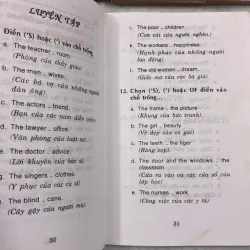 LUYỆN TẬP
Điền ('S) hoặc (') vào chỗ trống
a. The teacher .. room.
(Phòng của thầy giáo)
The man .. wives.
(Các bà vợ của những
đàn ông)
The actors .. friend.
(Bạn của các nam diễn viên)
The lawyer .. office.
(Văn phòng của luật sư)
The doctor .. advice.
(Lời khuyên của bác sĩ)
The singers .. clothes.
(Y phục của các ca sĩ)
The blind .. cane.
(Cây gậy của người mù)
30
c. The poor .. children.
(Con cái của người nghèo.)
d. The workers .. happiness.
(Hạnh phúc của những người
lao động)
e. The old women .. dream.
(Giấc mơ của các bà già)
12. Chọn ('S), (') hoặc OF điền vào
chỗ trống...
a. The frame .. the picture
(Khung của bức tranh)
b. The girl .. beauty
(Vẻ đẹp của cô gái)
c. The teeth .. the tiger
(Răng cọp)
d. The door and the windows .. the
classroom
(Cửa ra vào và các cửa sổ của
lớp học)
e. The nurses .. work
(Công việc của các y tá)
31